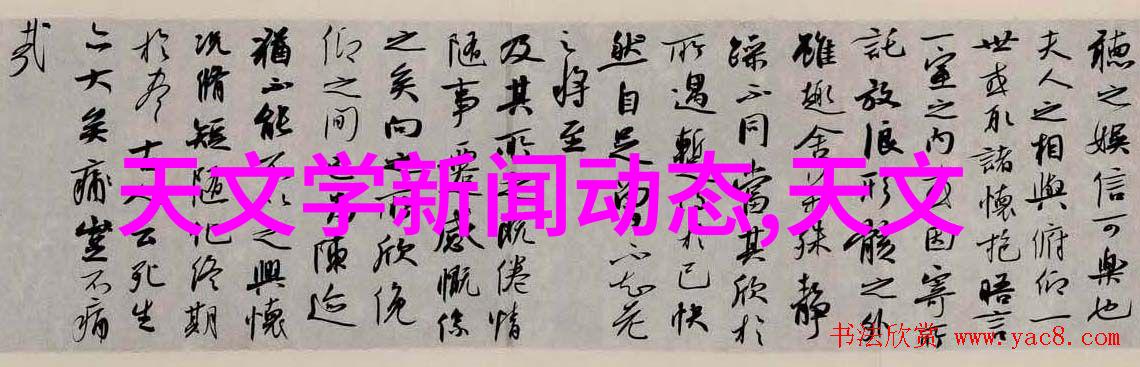 聽之娛信可樂也
夫人之相與俯仰一
世或取諸懷抱晤言
一室之内或因寄所
託放浪形骸之外
雖趣舍萬殊靜
躁不同當其欣於
所遇暫得於己快
然自足不知老
之將至
及其所之既倦情
隨事遷感慨係
之矣向之所欣俛
仰之間為陳迹
猶不能不以之興懷
況脩短隨化終期
於盡人云死生
亦大矣豈不痛
哉
天文学新闻动态,天文
书法欣赏 www.yac8.com